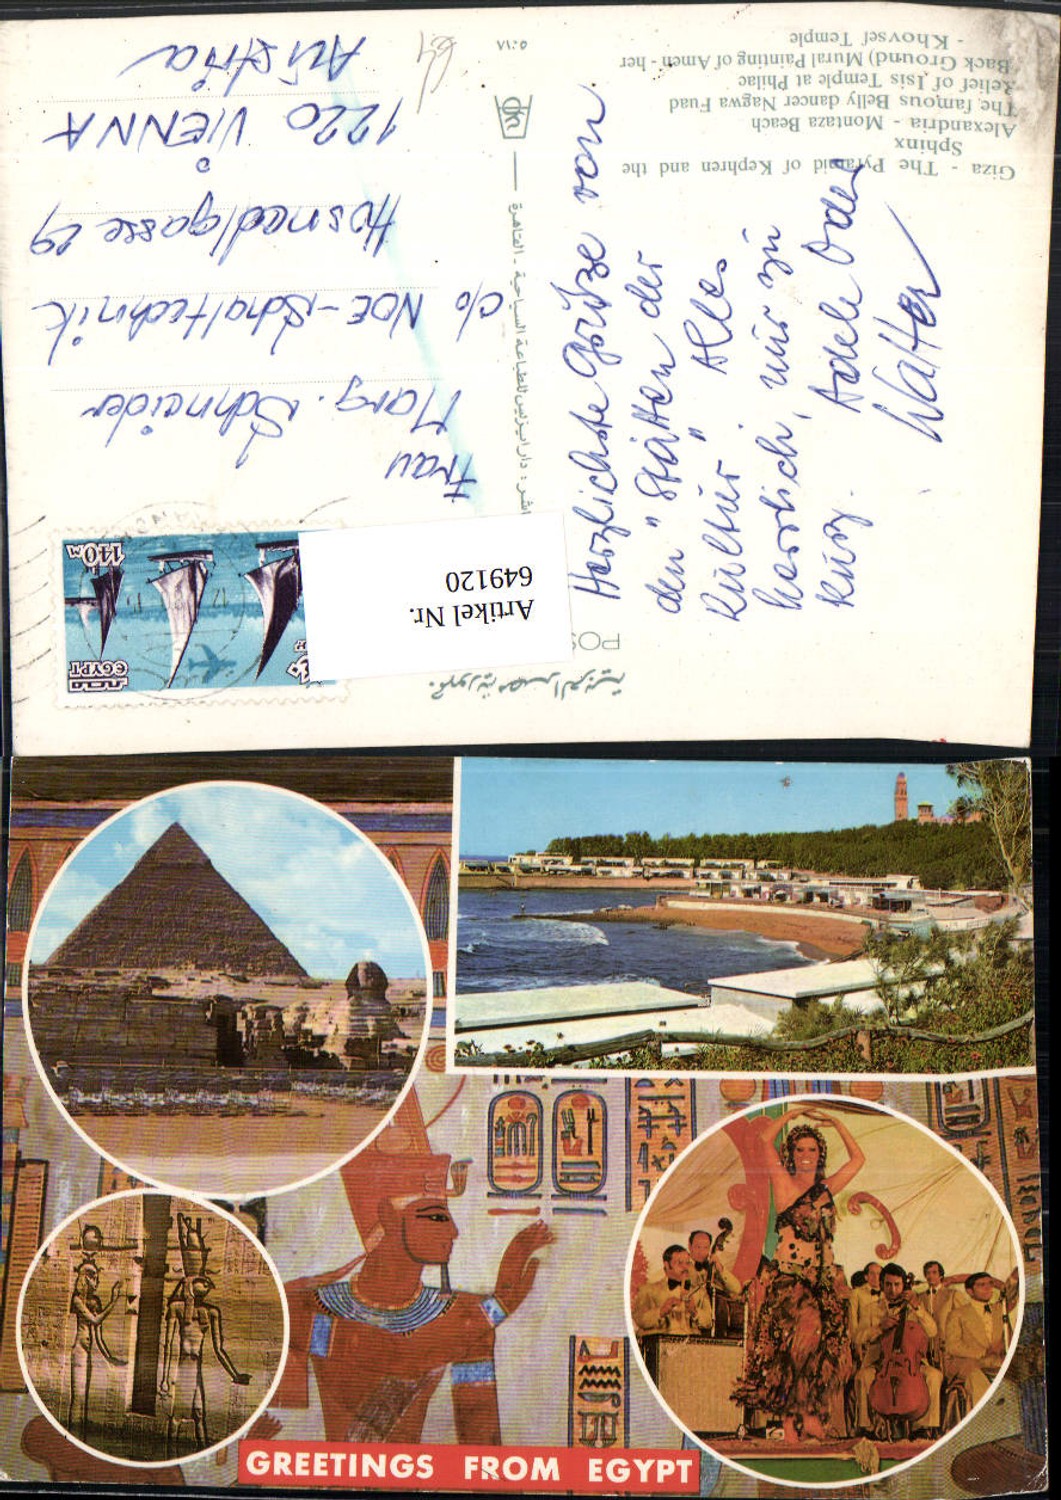 Giza - The Pyramid of Kephren and the
Sphinx
Alexandria - Montaza Beach
The famous Belly dancer Nagwa Fuad
Relief of Isis Temple at Philae
Back Ground) Mural Painting of Amen - her
- Khovsef Temple
٥٠١٨
الناشر : دار ايزيس للطباعة السياحية - القاهرة
جمهورية مصر العربية
POS
Artikel Nr.
649120
EGYPT
مصر
110M
Frau
Marg. Schneider
c/o NOE-Schaltechnik
1220 VIENNA
Austria
64
Herzlichste Grüsse von
den "Stätten der
Kultur" Alles
herrlich, nur zu
kurz.
Adele
Walter
GREETINGS FROM EGYPT